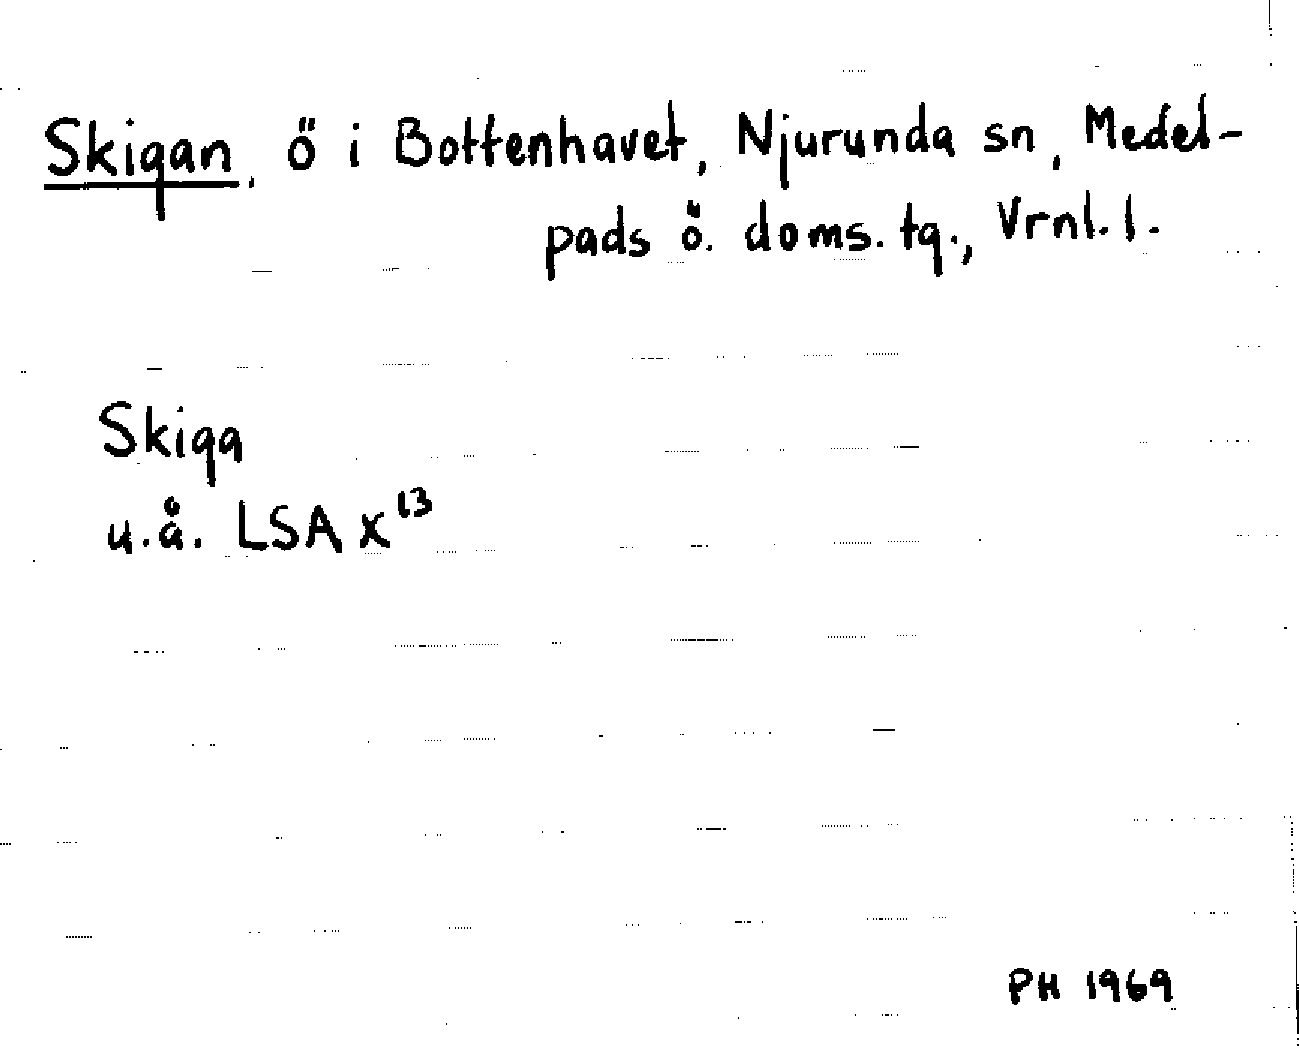 Skigan, ö i Bottenhavet, Njurunda sn, Medel-
pads ö. doms. tg., Vrnl. l.
Skiga
u.å. LSA X¹³
PH 1969